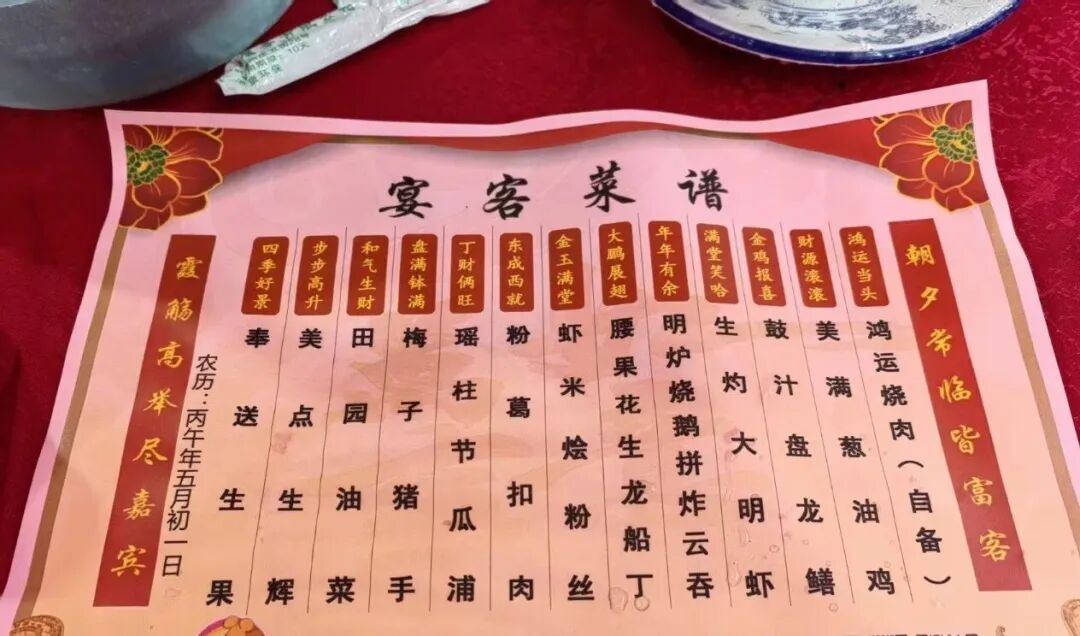 10天
宴客菜谱
朝夕常临皆富客
鸿运当头
鸿运烧肉（自备）
财源滚滚
美满葱油鸡
金鸡报喜
鼓汁盘龙鳝
满堂笑哈
生灼大明虾
年年有余
明炉烧鹅拼炸云吞
大鹏展翅
腰果花生龙船丁
金玉满堂
虾米烩粉丝
东成西就
粉葛扣肉
丁财俩旺
瑶柱节瓜浦
盘满钵满
梅子猪手
和气生财
田园油菜
步步高升
美点生辉
四季好景
奉送生果
农历：丙午年五月初一日
霞觞高举尽嘉宾